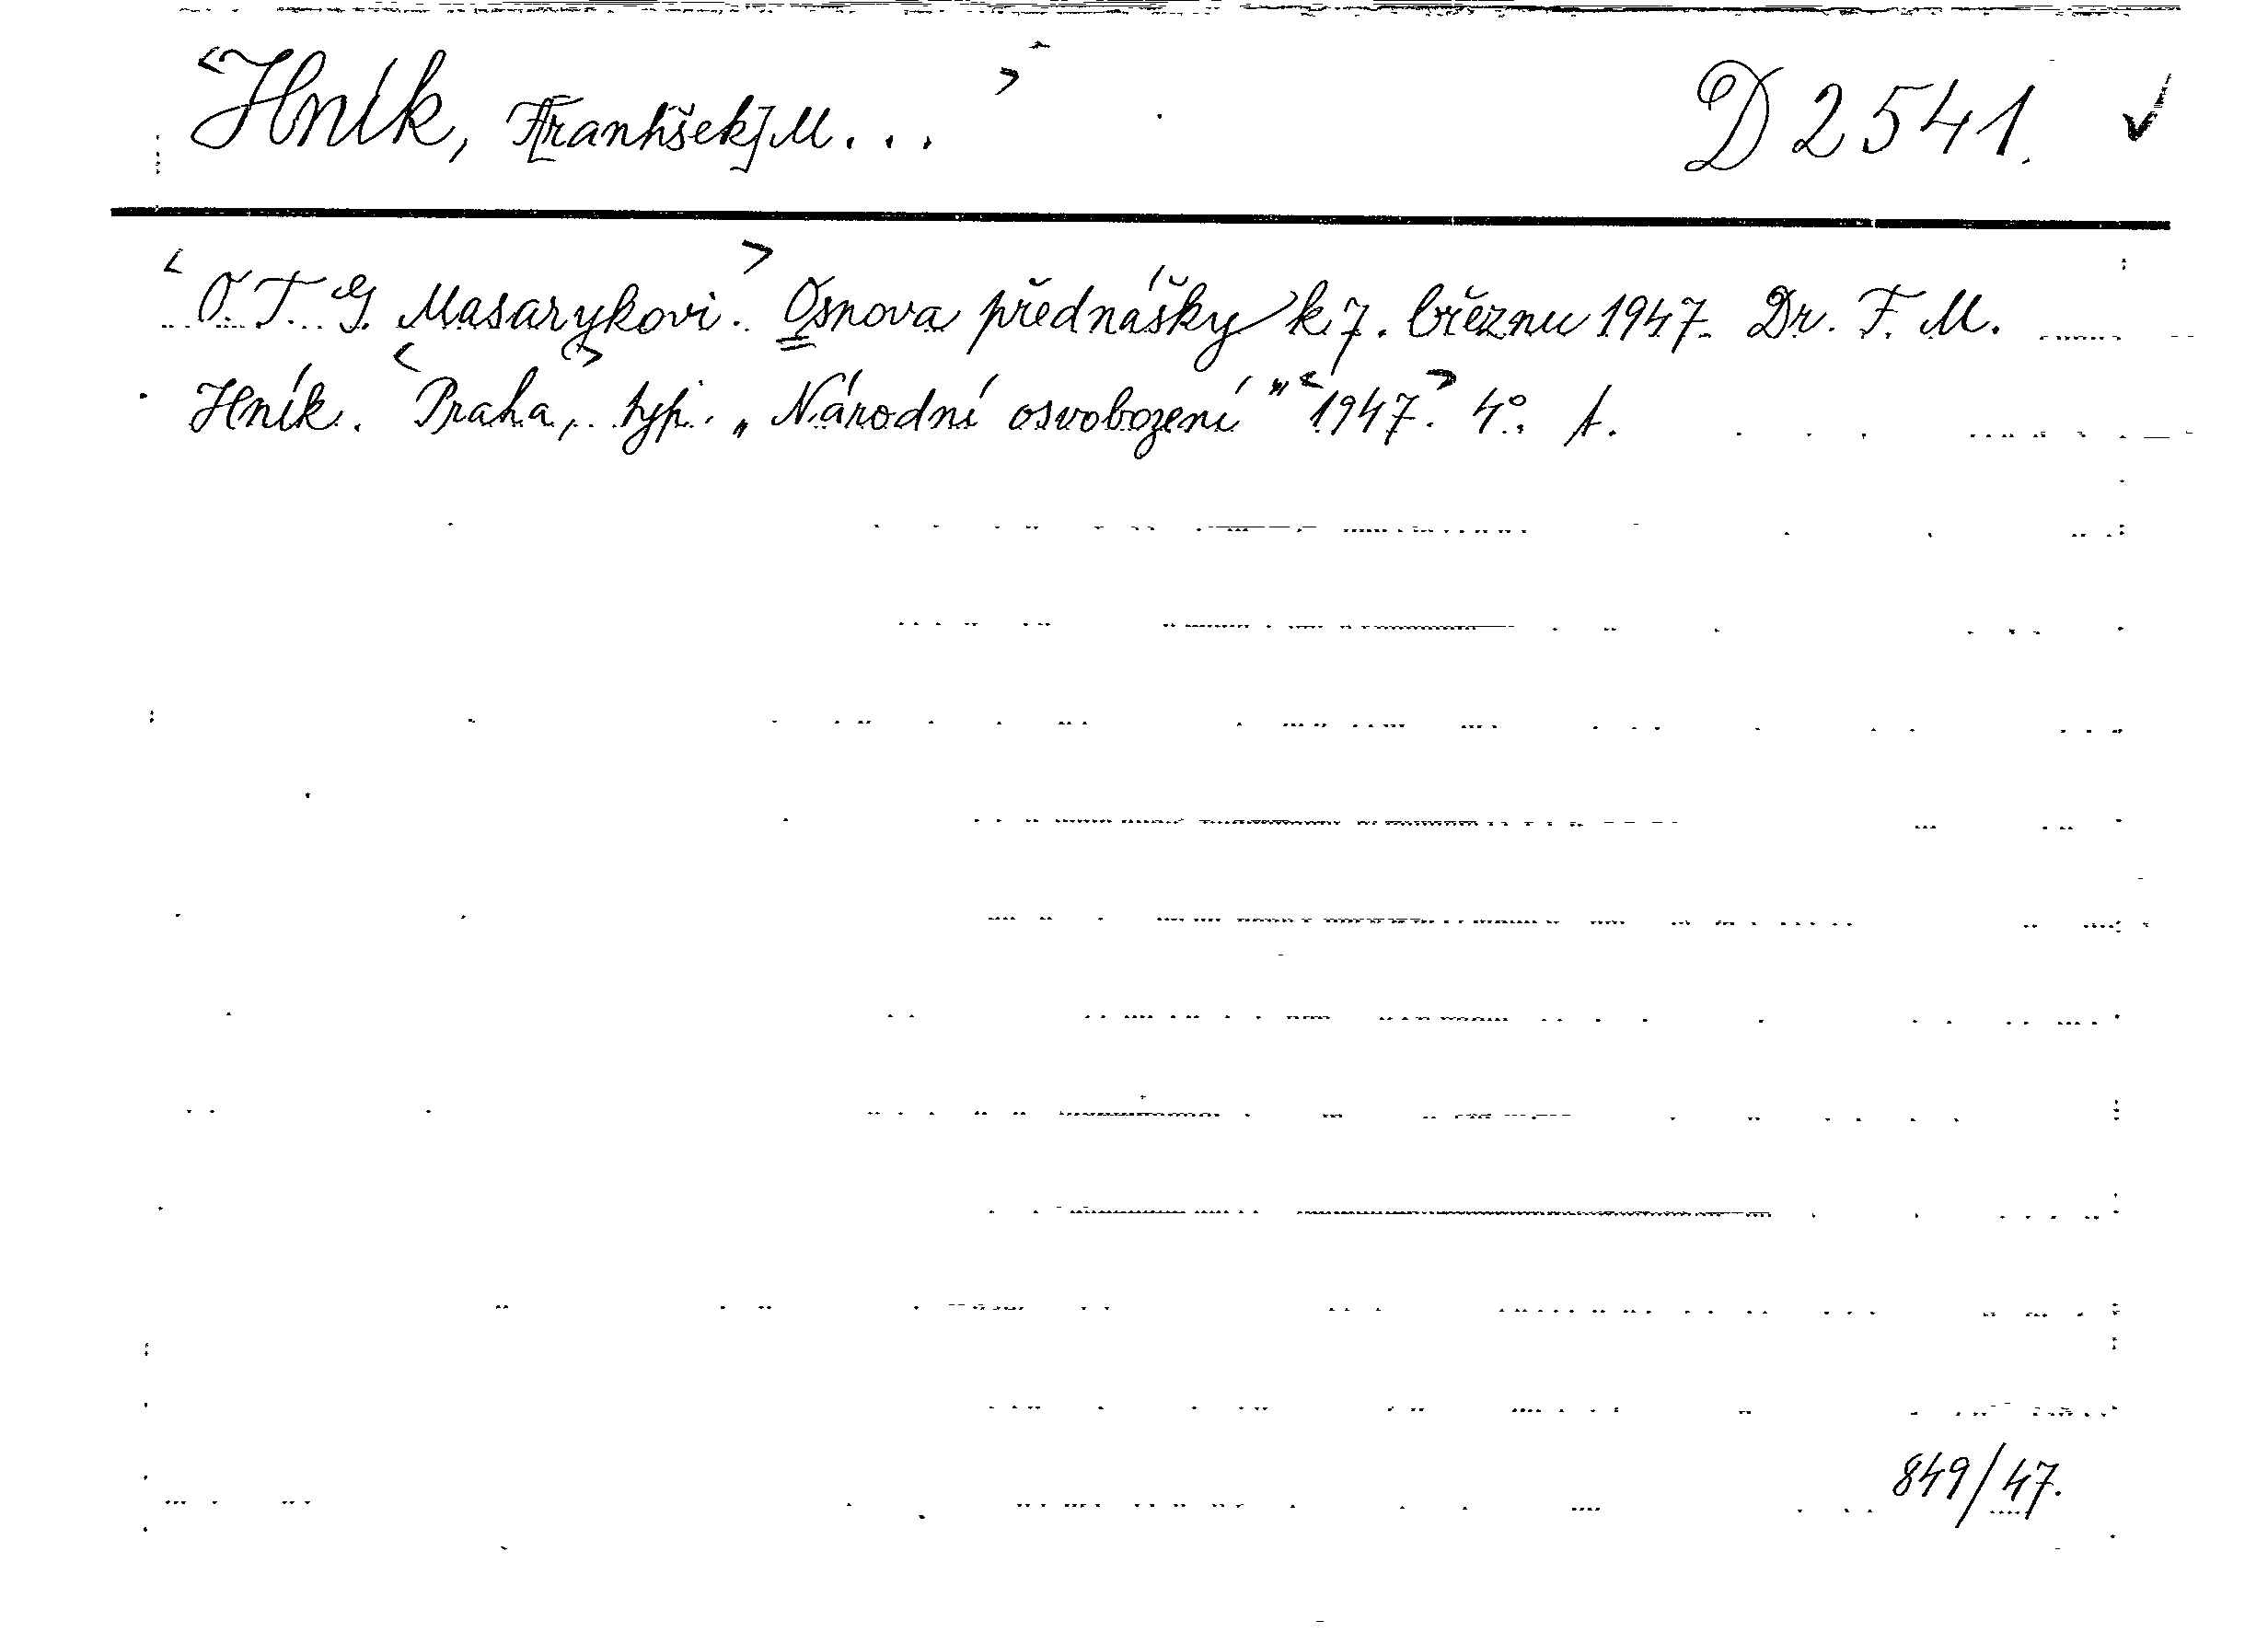 <Hník, F[rantišek] M...> D 2541. ✓
<O T. G. Masarykovi.> Osnova přednášky k 7. březnu 1947. Dr. F. M.
Hník. <Praha,> typ. „Národní osvobození" <1947.> 4°. A.
849/47.